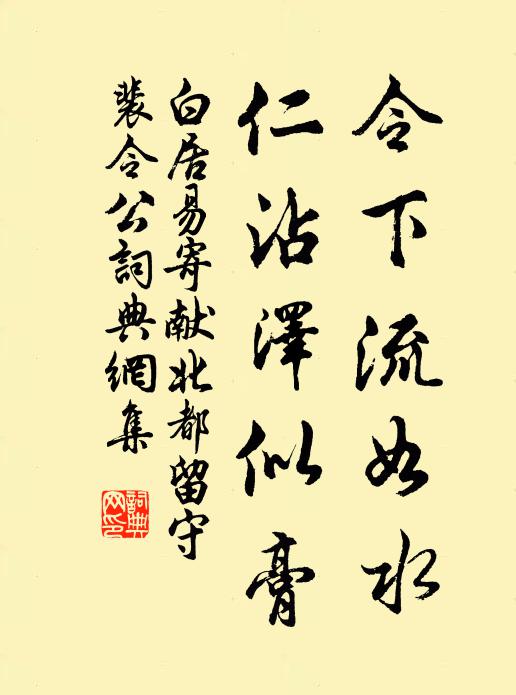 令下流如水
仁沾澤似膏
白居易寄献北都留守
裴令公詞典網集
詞典網印